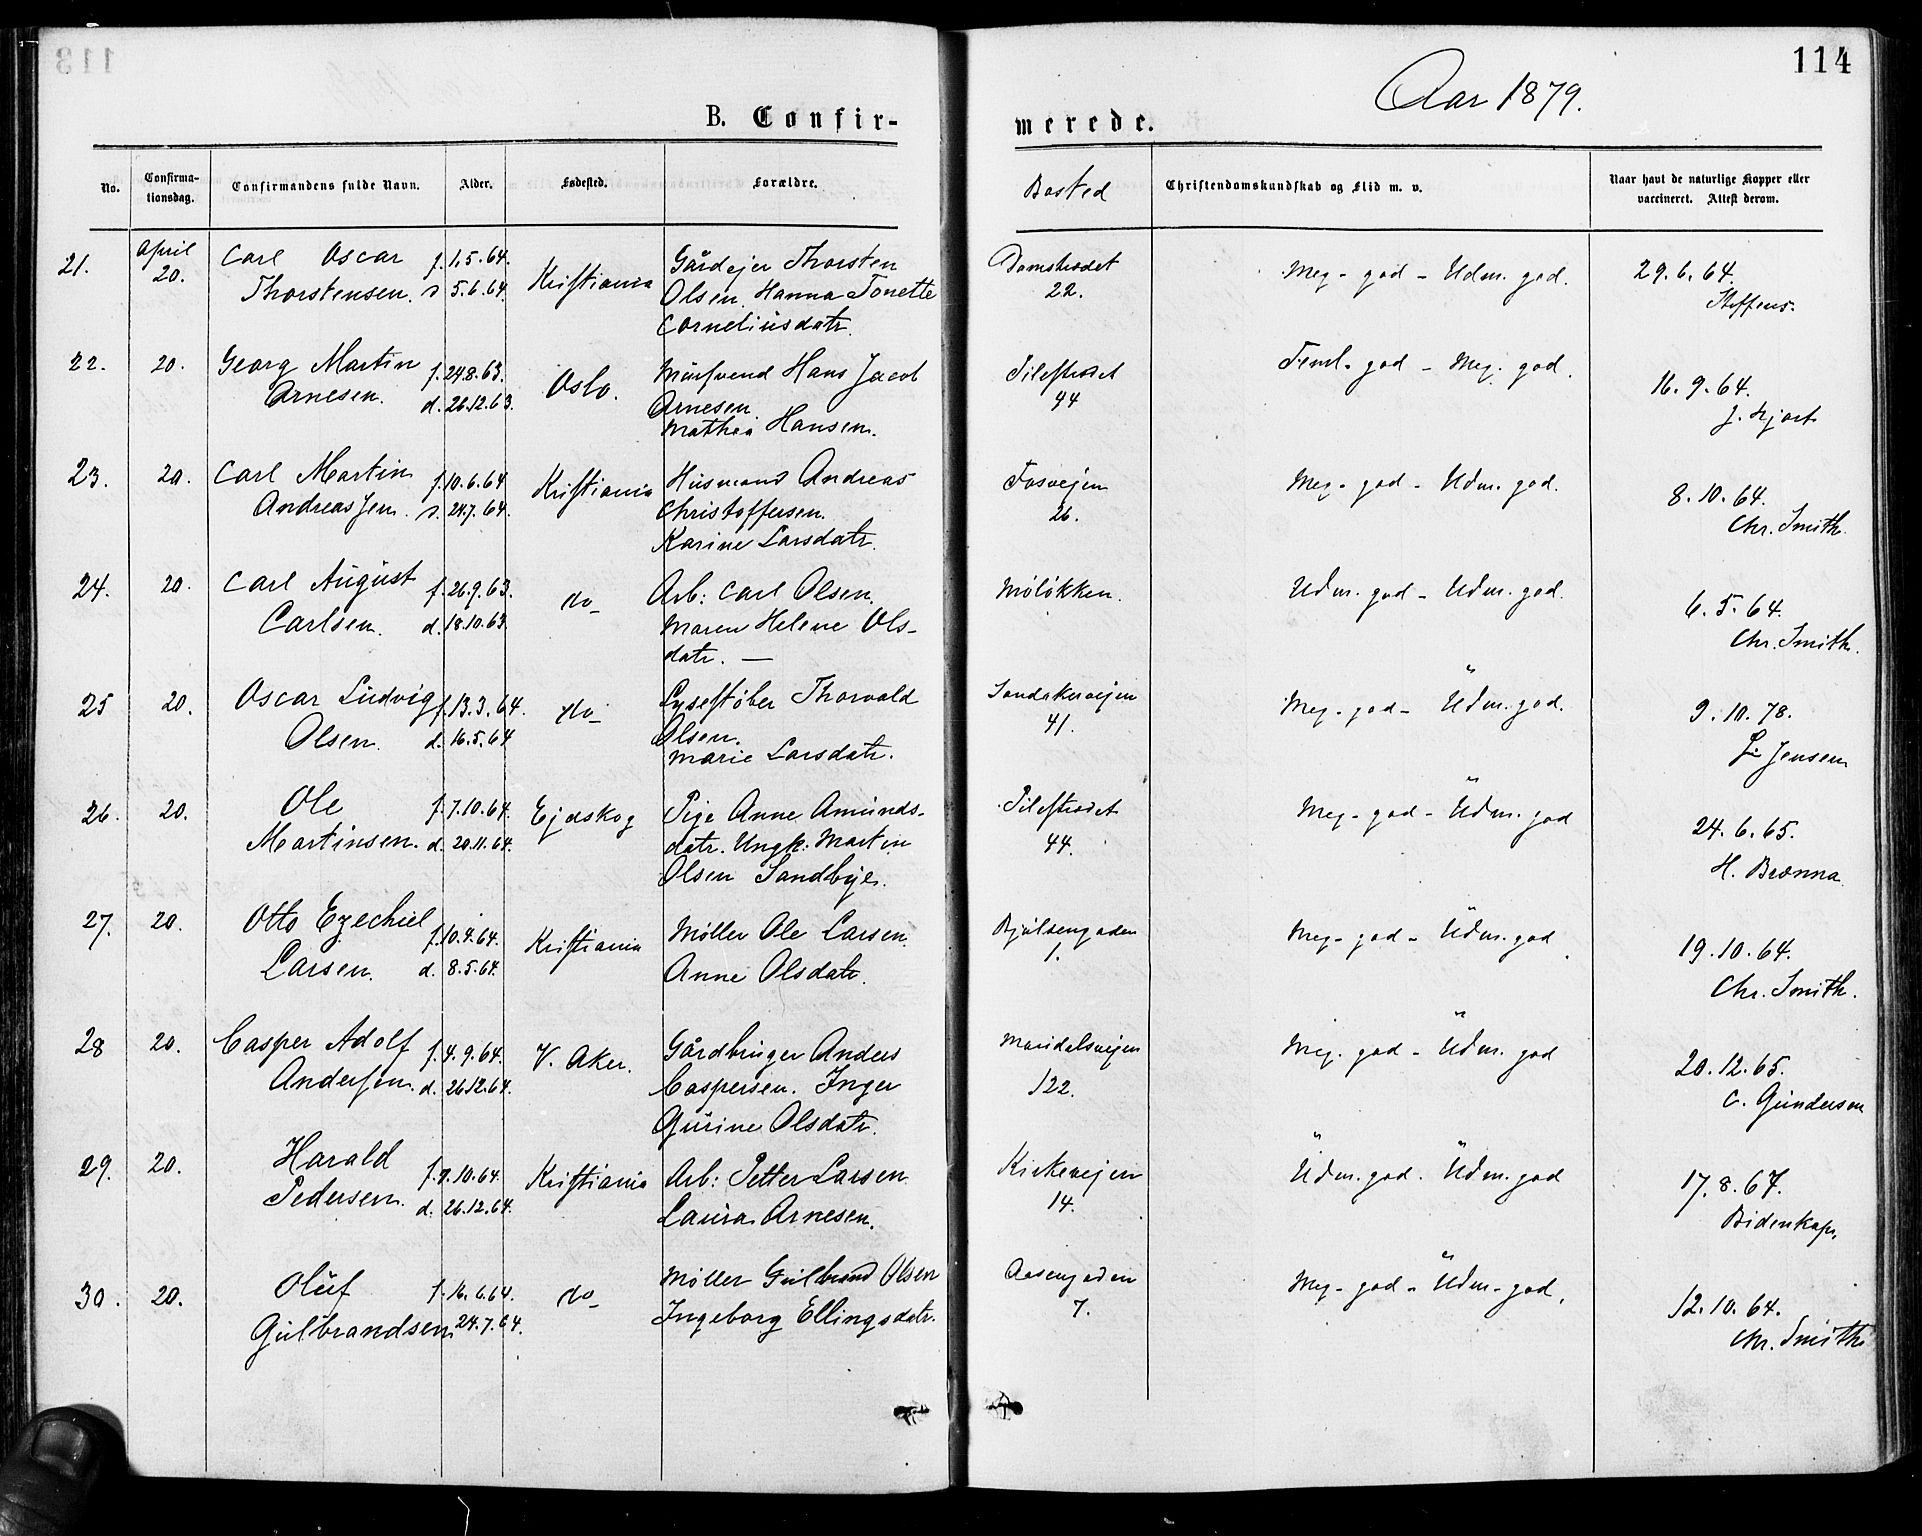 114
Aar 1879.
B. Confir-
merede.
No.
Confirma-
tionsdag.
Confirmandens fulde Navn.
Alder.
Fødested.
Forældre.
Bosted
Christendomskundskab og Flid m. v.
Naar havt de naturlige Kopper eller
vaccineret. Attest derom.
21. April 20. Carl Oscar Thorstensen. f. 1.5.64. d. 5.6.64. Kristiania
Gårdejer Thorsten
Olsen. Hanna Tonette
Corneliusdatr.
Damstrædet
22.
Meg. god - Udm. god.
29.6.64.
Steffens.
22. 20. Georg Martin Arnesen. f. 24.8.63. d. 26.12.63. Oslo.
Mursvend Hans Jacob
Arnesen.
Mathea Hansen.
Pilestrædet
44
Teml. god - Meg. god.
16.9.64.
J. Hjort
23. 20. Carl Martin Andreasen. f. 10.6.64 d. 24.7.64. Kristiania
Husmand Andreas
Christoffersen.
Karine Larsdatr.
Fosvejen
26.
Meg. god - Udm. god.
8.10.64.
Chr. Smith.
24. 20. Carl August Carlsen. f. 26.9.63. d. 18.10.63. do
Arb: Carl Olsen.
Maren Helene Ols-
datr. —
Möløkken.
Udm. god - Udm. god.
6.5.64.
Chr. Smith.
25 20. Oscar Ludvig Olsen. f. 13.3.64. d. 16.5.64 do
Lysestøber Thorvald
Olsen.
Marie Larsdatr.
Sandakervejen
41.
Meg. god - Udm. god.
9.10.78.
Jensen
26. 20. Ole Martinsen. f. 7.10.64. d. 20.11.64. Ejdskog
Pige Anne Amunds-
datr. Ungk: Martin
Olsen Sandbye.
Pilestrædet
44.
Meg. god - Udm. god
24.6.65.
H. Brænna
27. 20. Otto Ezechiel Larsen. f. 10.4.64. d. 8.5.64. Kristiania
Møller Ole Larsen.
Anne Olsdatr.
Bjølsengaden
1.
Meg. god - Udm. god.
19.10.64.
Chr. Smith.
28 20. Casper Adolf Andersen. f. 4.9.64. d. 26.12.64. V. Aker.
Gårdbruger Anders
Caspersen. Inger
Gurine Olsdatr.
Maridalsvejen
122.
Meg. god - Udm. god
20.12.65.
C. Gundersen
29. 20. Harald Pedersen. f. 9.10.64. d. 26.12.64. Kristiania
Arb: Petter Larsen
Laura Arnesen.
Kirkevejen
14.
Udm. god. Udm. god
17.8.67.
Bidenkap.
30. 20. Oluf Gulbrandsen. f. 16.6.64. 24.7.64. do
Møller Gulbrand Olsen
Ingeborg Ellingsdatr.
Aasengaden
7.
Meg. god - Udm. god.
12.10.64.
Chr. Smith